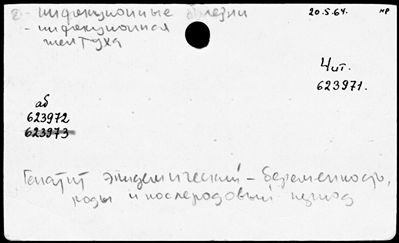 - инфекционные болезни 20.5.64. нр
- инфекционная
желтуха
Чит.
623971.
аб
623972
623973
Гепатит эпидемический - беременность,
роды и послеродовый период